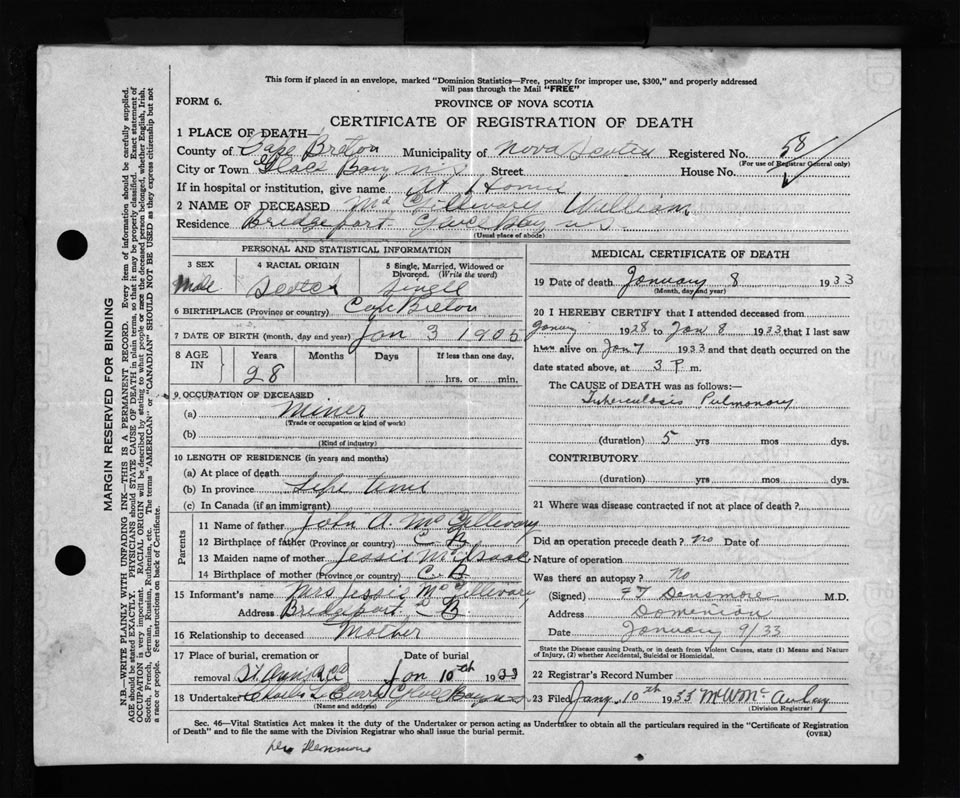 This form if placed in an envelope, marked "Dominion Statistics—Free, penalty for improper use, $300," and properly addressed
will pass through the Mail "FREE"
FORM 6.
PROVINCE OF NOVA SCOTIA
CERTIFICATE OF REGISTRATION OF DEATH
1 PLACE OF DEATH—
County of Cape Breton Municipality of Nova Scotia Registered No. 58
(For use of Registrar General only)
City or Town Glace Bay N S Street House No.
If in hospital or institution, give name At Home
2 NAME OF DECEASED Mc Gillevary William
Residence Bridgeport Glace Bay N.S.
(Usual place of abode)
PERSONAL AND STATISTICAL INFORMATION
3 SEX 4 RACIAL ORIGIN 5 Single, Married, Widowed or
Divorced. (Write the word)
Male Scotch Single
6 BIRTHPLACE (Province or country) Cape Breton
7 DATE OF BIRTH (month, day and year) Jan 3 1905
8 AGE IN Years Months Days If less than one day,
28 hrs. or min.
9 OCCUPATION OF DECEASED
(a) Miner
(Trade or occupation or kind of work)
(b)
(Kind of industry)
10 LENGTH OF RESIDENCE (in years and months)
(a) At place of death
(b) In province Life time
(c) In Canada (if an immigrant)
Parents
11 Name of father John A. Mc Gillevary
12 Birthplace of father (Province or country) C. B.
13 Maiden name of mother Jessie Mc Isaac
14 Birthplace of mother (Province or country) C. B.
15 Informant's name Mrs Jessie Mc Gillevary
Address Bridgeport C B
16 Relationship to deceased Mother
17 Place of burial, cremation or Date of burial
removal Jan 10th 1933
18 Undertaker Glace Bay N S
(Name and address)
MEDICAL CERTIFICATE OF DEATH
19 Date of death January 8 1933
(Month, day and year)
20 I HEREBY CERTIFY that I attended deceased from
January 1928 to Jan 8 1933 that I last saw
him alive on Jan 7 1933 and that death occurred on the
date stated above, at 3 P m.
The CAUSE of DEATH was as follows:—
Tuberculosis Pulmonary
(duration) 5 yrs mos dys.
CONTRIBUTORY
(duration) yrs mos dys.
21 Where was disease contracted if not at place of death?
Did an operation precede death? no Date of
Nature of operation
Was there an autopsy? No
(Signed) Densmore M.D.
Address Dominion
Date January 9/33
State the Disease causing Death, or in death from Violent Causes, state (1) Means and Nature
of Injury, (2) whether Accidental, Suicidal or Homicidal.
22 Registrar's Record Number
23 Filed Jany. 10th 1933 M W Mc Aulay
(Division Registrar)
Sec. 46—Vital Statistics Act makes it the duty of the Undertaker or person acting as Undertaker to obtain all the particulars required in the "Certificate of Registration
of Death" and to file the same with the Division Registrar who shall issue the burial permit.
(OVER)
MARGIN RESERVED FOR BINDING
N.B.—WRITE PLAINLY WITH UNFADING INK—THIS IS A PERMANENT RECORD. Every item of information should be carefully supplied.
AGE should be stated EXACTLY. PHYSICIANS should STATE CAUSE OF DEATH in plain terms, so that it may be properly classified. Exact statement of
OCCUPATION is very important. RACIAL ORIGIN will be described by stating to what people or race the deceased person belonged, whether English, Irish,
Scotch, French, German, Russian, Ruthenian, etc. The terms "AMERICAN" or "CANADIAN" SHOULD NOT BE USED as they express citizenship but not
a race or people. See instructions on back of Certificate.